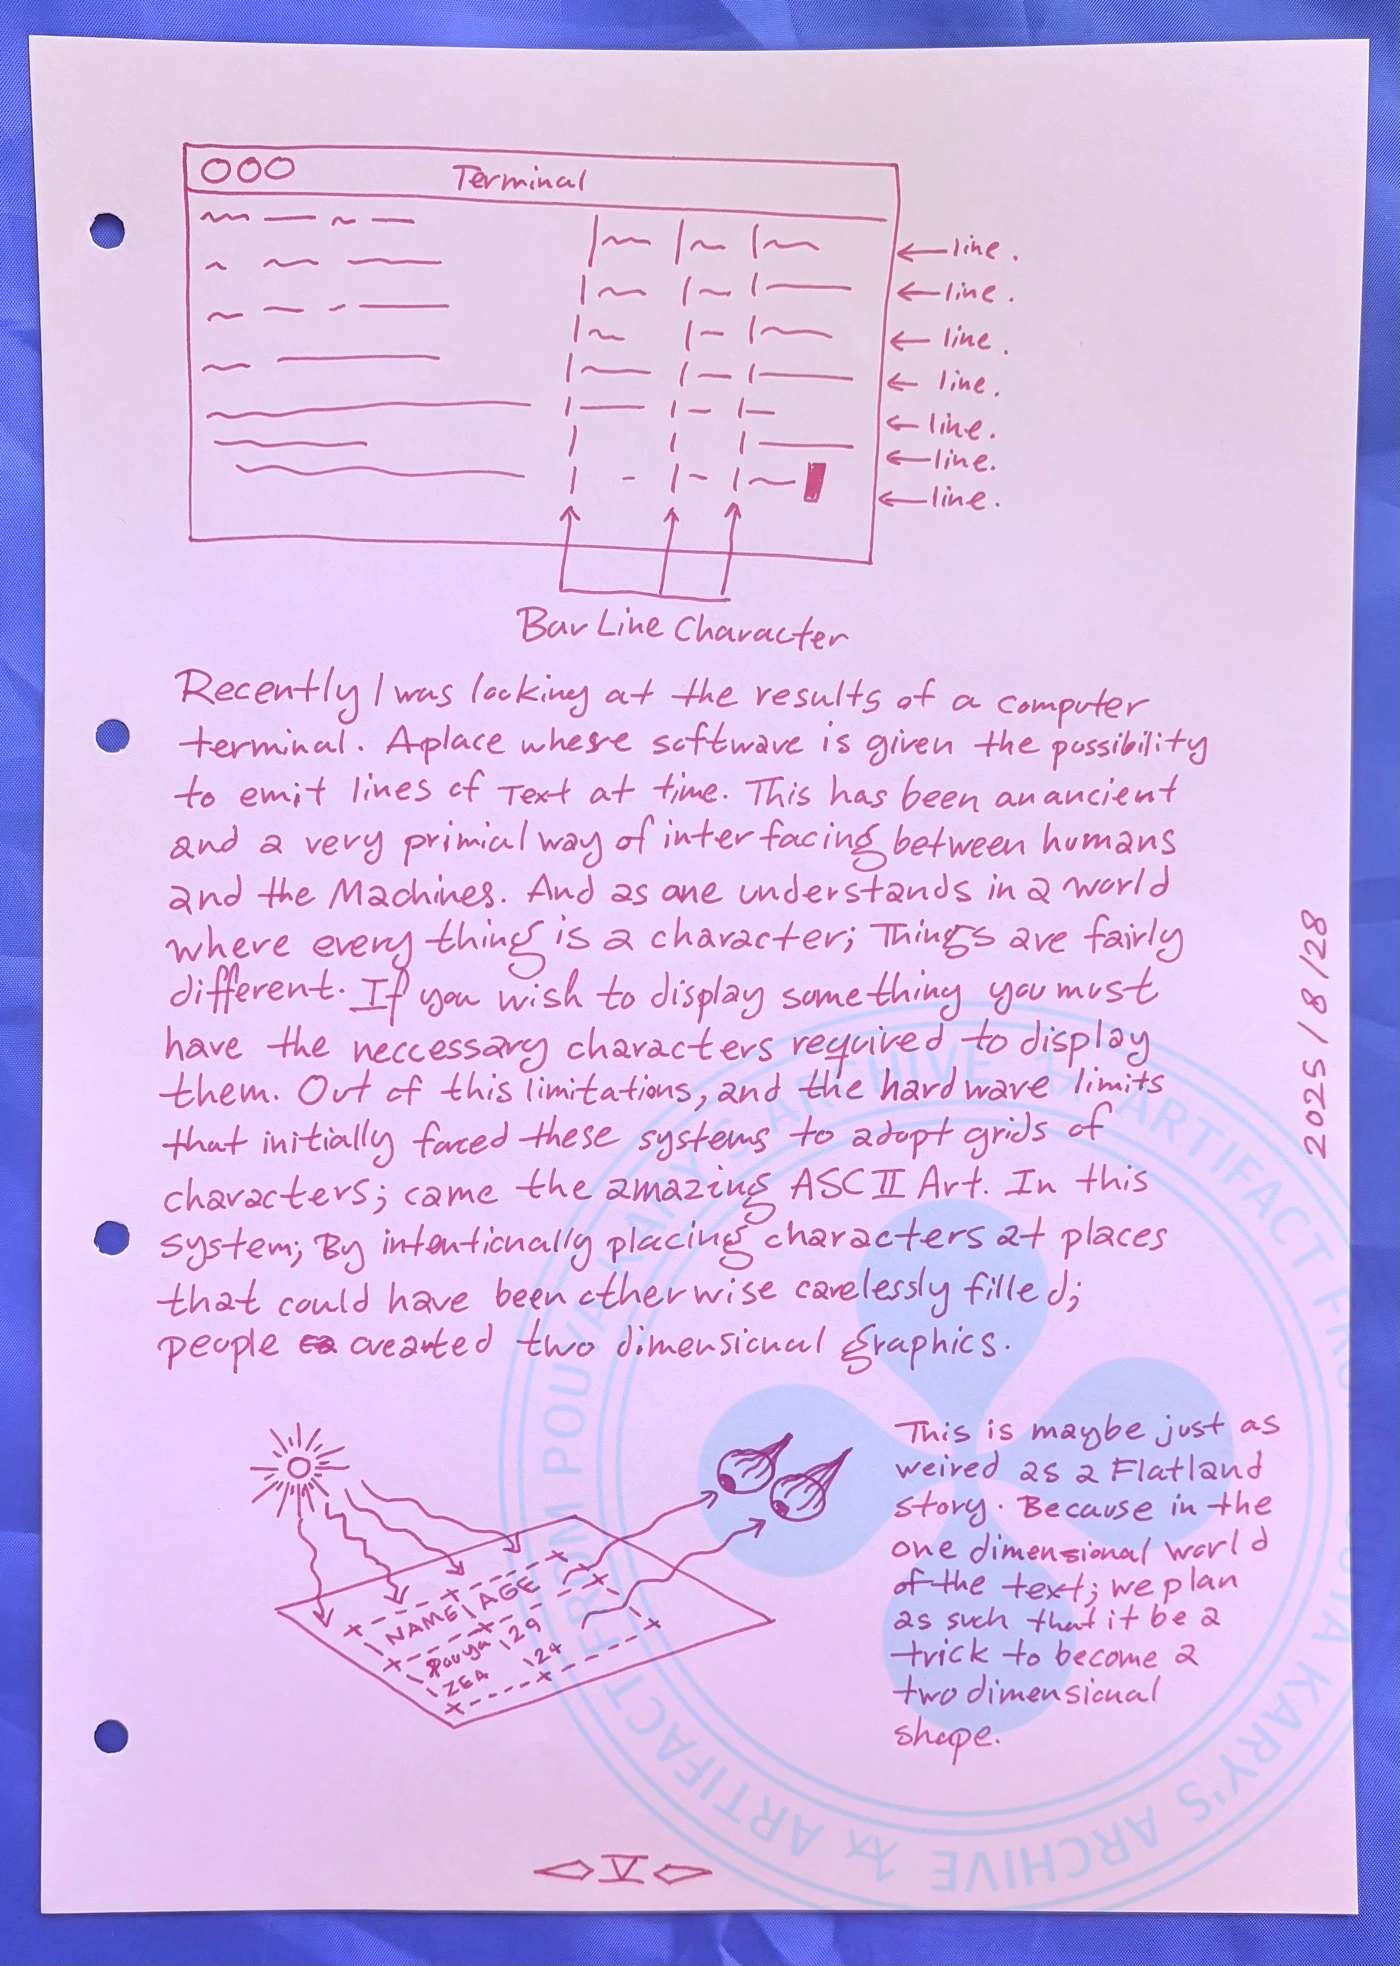 Terminal
line.
line.
line.
line.
line.
line.
line.
Bar Line Character
Recently I was looking at the results of a computer
terminal. A place where software is given the possibility
to emit lines of Text at time. This has been an ancient
and a very primial way of interfacing between humans
and the Machines. And as one understands in a world
where every thing is a character; Things are fairly
different. If you wish to display something you must
have the neccessary characters required to display
them. Out of this limitations, and the hardware limits
that initially faced these systems to adopt grids of
characters; came the amazing ASCII Art. In this
system; By intentionally placing characters at places
that could have been otherwise carelessly filled;
people created two dimensional graphics.
2025/8/28
NAME | AGE
Pouya | 29
ZEA | 24
This is maybe just as
weired as a Flatland
story. Because in the
one dimensional world
of the text; we plan
as such that it be a
trick to become a
two dimensional
shape.
V
ARTIFACT FROM POUYA KARY'S ARCHIVE
ARTIFACT FROM POUYA KARY'S ARCHIVE